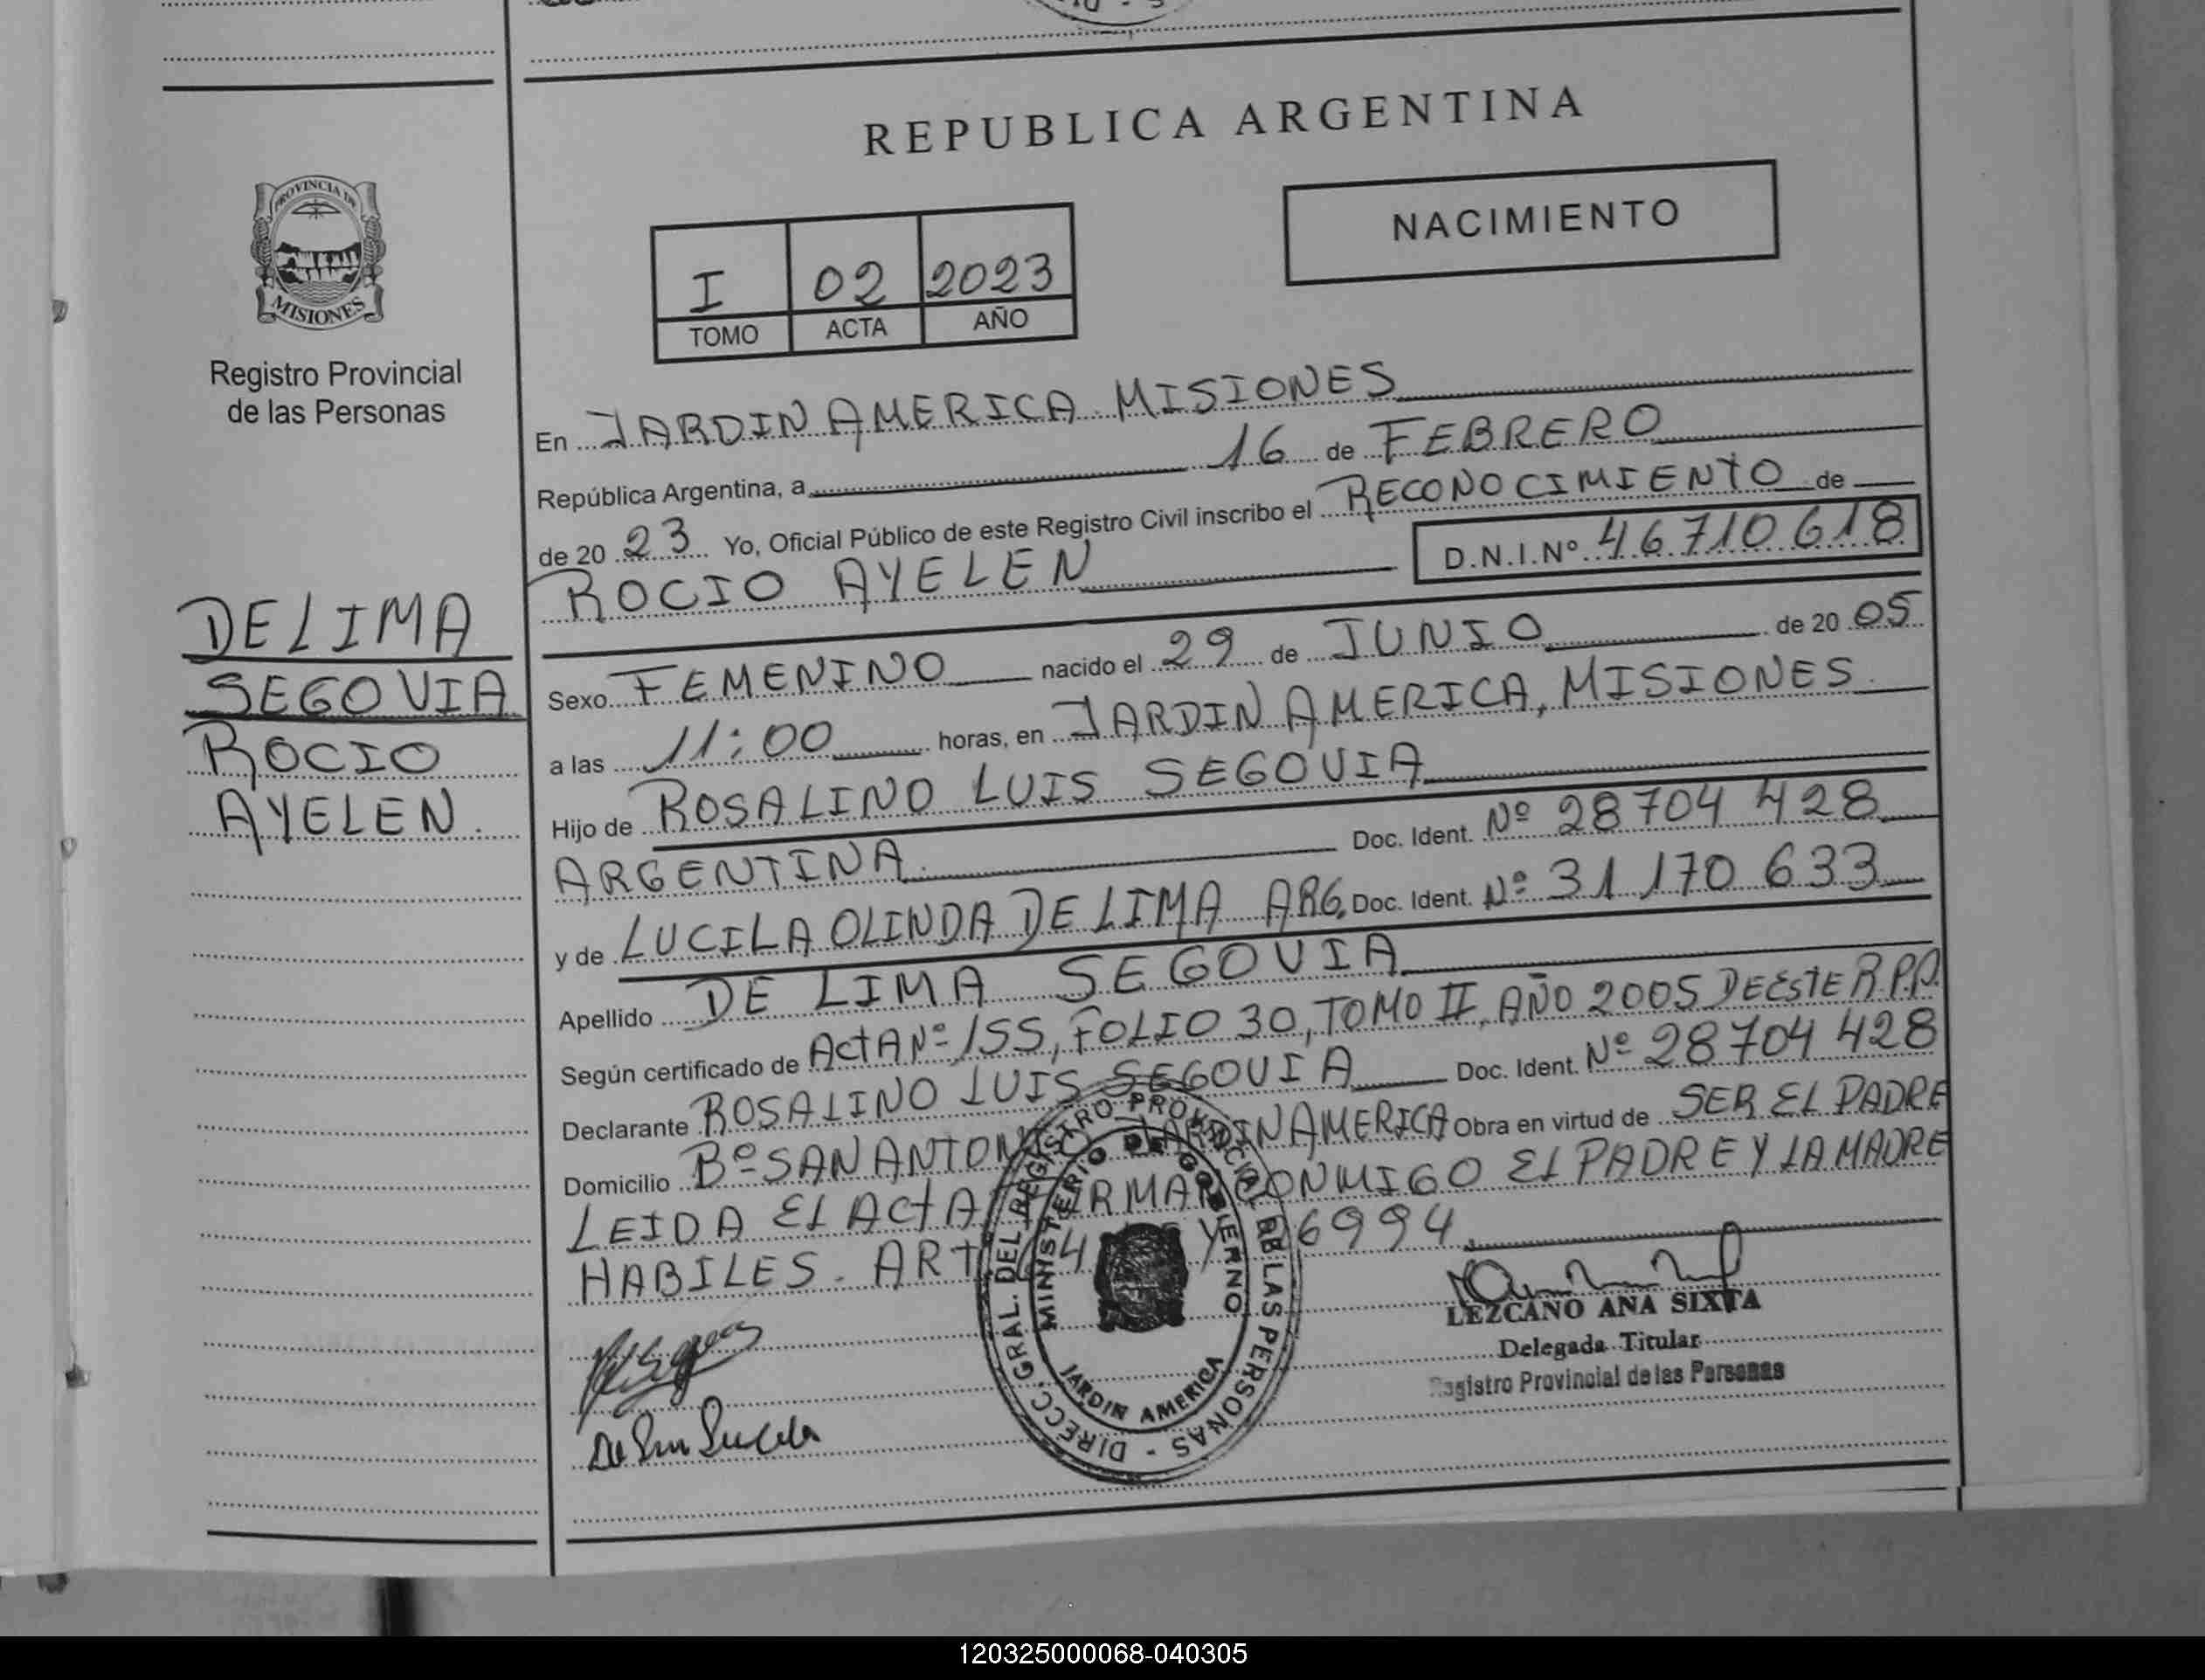 REPUBLICA ARGENTINA
NACIMIENTO
I 02 2023
TOMO ACTA AÑO
PROVINCIA DE
MISIONES
Registro Provincial
de las Personas
DE LIMA
SEGOVIA
ROCIO
AYELEN.
En JARDIN AMERICA MISIONES
República Argentina, a 16 de FEBRERO
de 20 23 Yo, Oficial Público de este Registro Civil inscribo el RECONOCIMIENTO de
ROCIO AYELEN D.N.I.Nº 46710618
Sexo FEMENINO nacido el 29 de JUNIO de 20 05
a las 11:00 horas, en JARDIN AMERICA, MISIONES.
Hijo de ROSALINO LUIS SEGOVIA
ARGENTINA. Doc. Ident. Nº 28704 428
y de LUCILA OLINDA DE LIMA ARG. Doc. Ident. Nº 31 170 633
Apellido DE LIMA SEGOVIA
Según certificado de ActA Nº 155, FOLIO 30, TOMO II, AÑO 2005 DE EStE R.P.P.
Declarante ROSALINO LUIS SEGOVIA Doc. Ident. Nº 28704 428
Domicilio Bº SAN ANTONIO JARDIN AMERICA Obra en virtud de SER EL PADRE
LEIDA El ActA FIRMAN CONMIGO El PADRE Y LA MADRE
HABILES. ART 64 26994.
DIRECC. GRAL. DEL REGISTRO PROVINCIAL DE LAS PERSONAS -
MINISTERIO DE GOBIERNO
JARDIN AMERICA
LEZCANO ANA SIXTA
Delegada Titular
Registro Provincial de las Personas
De Lima Lucila
120325000068-040305